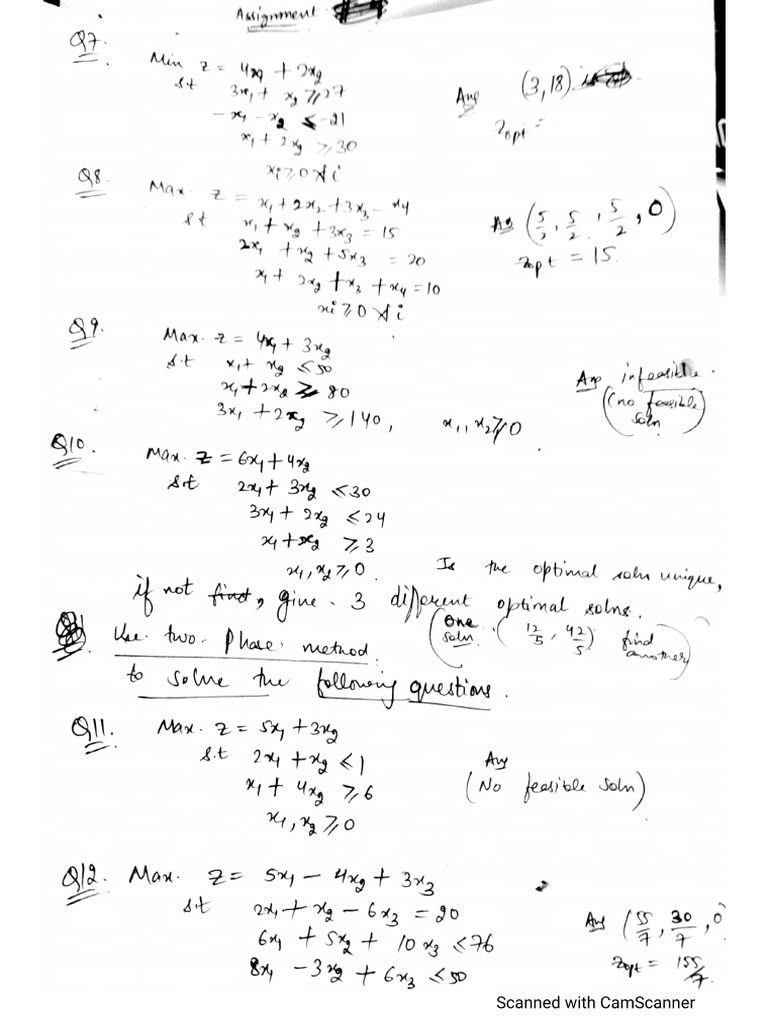 Assignment
Q7.
Min z = 4x₁ + 2x₂
st 3x₁ + x₂ ≥ 27
-x₁ - x₂ ≤ -21
x₁ + 2x₂ ≥ 30
xi ≥ 0 ∀ i
Ans (3, 18)
Zopt =
Q8.
Max. z = x₁ + 2x₂ + 3x₃ - x₄
st x₁ + x₂ + 3x₃ = 15
2x₁ + x₂ + 5x₃ = 20
x₁ + 2x₂ + x₃ + x₄ = 10
xi ≥ 0 ∀ i
As (5/2, 5/2, 5/2, 0)
Zopt = 15.
Q9.
Max. z = 4x₁ + 3x₂
s.t x₁ + x₂ ≤ 50
x₁ + 2x₂ ≥ 80
3x₁ + 2x₂ ≥ 140, x₁, x₂ ≥ 0
Ans infeasible.
(no feasible soln)
Q10.
Max. z = 6x₁ + 4x₂
s.t 2x₁ + 3x₂ ≤ 30
3x₁ + 2x₂ ≤ 24
x₁ + x₂ ≥ 3
x₁, x₂ ≥ 0. Is the optimal soln unique,
if not find, give 3 different optimal solns.
(One soln. (12/5, 42/5) find another)
Use two-Phase method
to solve the following questions.
Q11. Max. z = 5x₁ + 3x₂
s.t 2x₁ + x₂ ≤ 1
x₁ + 4x₂ ≥ 6
x₁, x₂ ≥ 0
Ans
(No feasible soln)
Q12. Max. z = 5x₁ - 4x₂ + 3x₃
s.t 2x₁ + x₂ - 6x₃ = 20
6x₁ + 5x₂ + 10x₃ ≤ 76
8x₁ - 3x₂ + 6x₃ ≤ 50
Ans (55/7, 30/7, 0
Zopt = 155/7.
Scanned with CamScanner